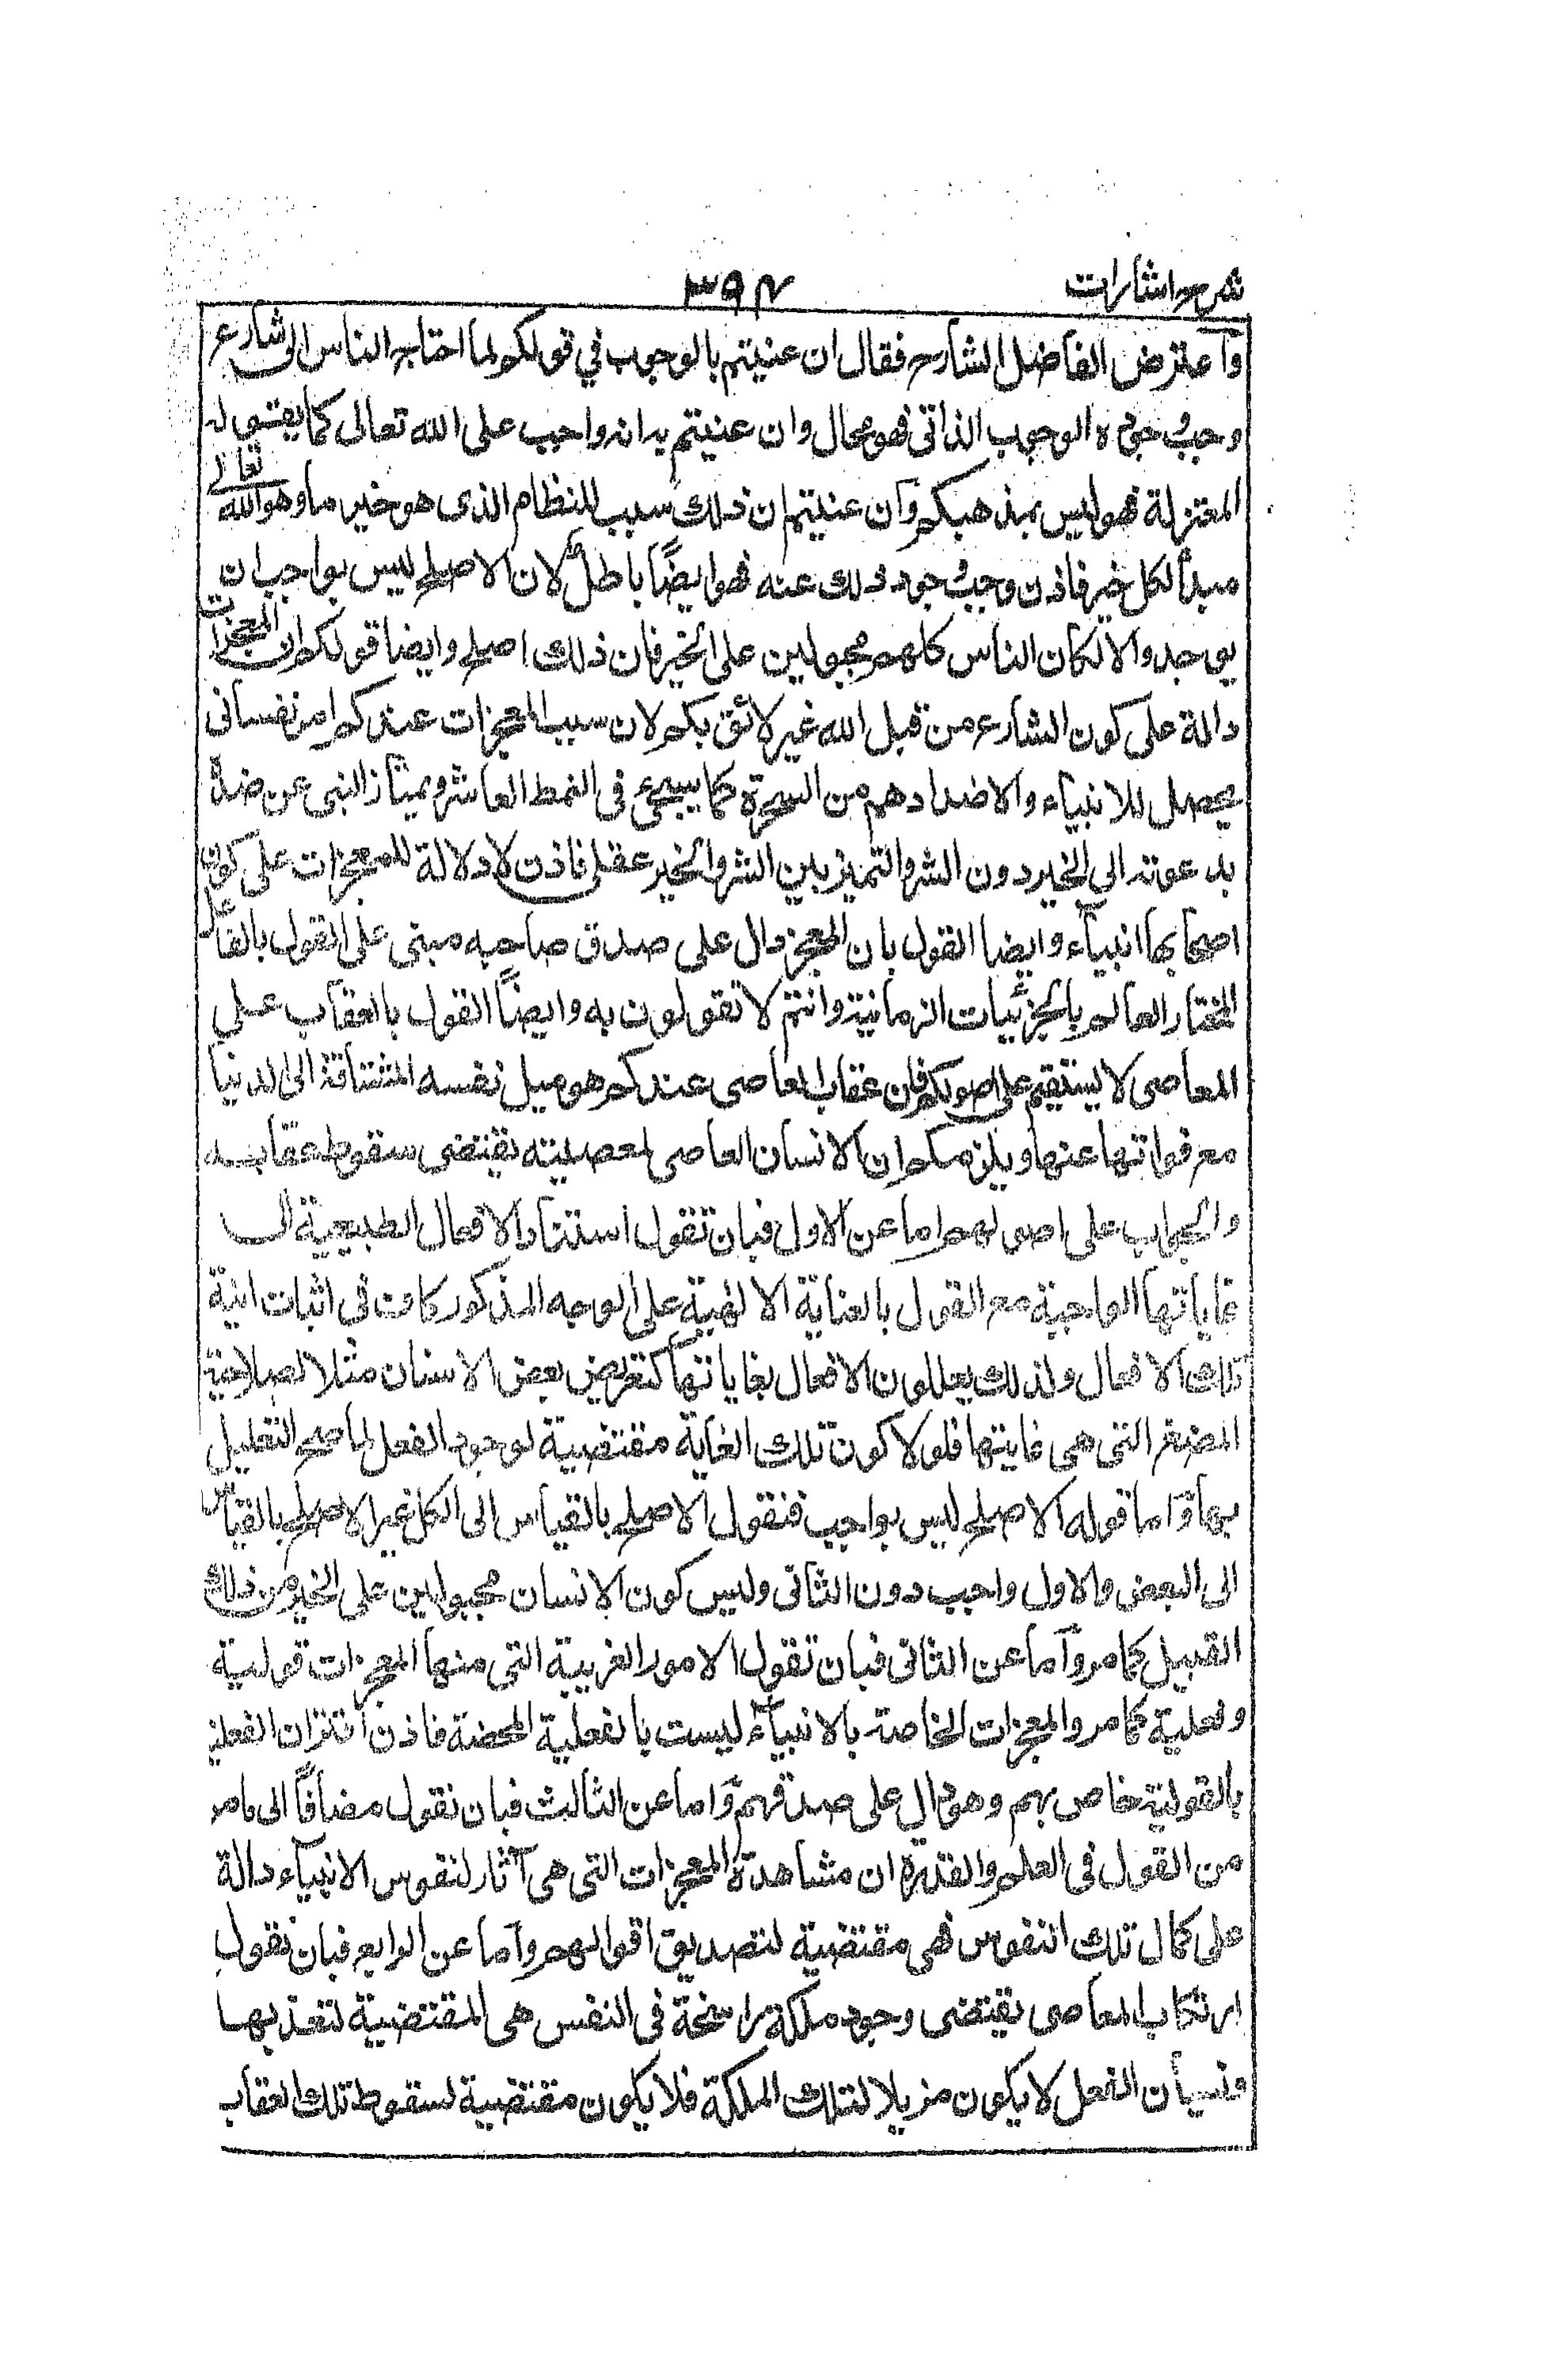 شرح اشارات
٣٩٤
وآعترض الفاضل الشارح فقال ان عنيتم بالوجوب في قولكم لما احتاج الناس الى شارع
وجب وجوده الوجوب الذاتى فهو محال وان عنيتم به انه واجب على الله تعالى كما يقوله
المعتزلة فهو ليس بمذهبكم وآن عنيتم ان ذلك سبب للنظام الذى هو خير ما وهو الله تعالى
مبدأ لكل خير فاذن وجب وجود ذلك عنه فهو ايضًا باطل لان الاصلح ليس بواجب ان
يوجد والا لكان الناس كلهم مجبولين على الخير فان ذلك اصلح وايضا قولكم ان المعجزات
دالة على كون الشارع من قبل الله غير لائق بكم لان سبب المعجزات عندكم امر نفسانى
يحصل للانبياء والاضدادهم من السحرة كما يسجئ فى النمط العاشر ويمتاز النبى عن ضدّه
بدعوته الى الخير دون الشر والتميز بين الشر والخير عقلى فاذن لا دلالة للمعجزات على كون
اصحابها انبياء وايضا القول بان المعجز دال على صدق صاحبه مبنى على القول بالفاعل
المختار العالم بالجزئيات الزمانية وانتم لا تقولون به وايضًا القول بالعقاب على
المعاصى لا يستقيم على اصولكم فان عقاب المعاصى عندكم هو ميل نفسه المشتاقة الى الدنيا
مع فواتها عنها ويلزمكم ان الانسان العاصى لمعصيته يقتضى سقوط عقابه
والجواب على اصولهم اما عن الاول فبان تقول استناد الافعال الطبيعية الى
غاياتها الواجبة مع القول بالعناية الالهية على الوجه المذكور كاف فى اثبات انية
تلك الافعال ولذلك يعللون الافعال بغاياتها كتعريض بعض الاسنان مثلا لصلاحية
المضغ التى هى غايتها فلولا كون تلك الغاية مقتضية لوجود الفعل لما صح التعليل
بها وآما قوله الاصلح ليس بواجب فنقول الاصلح بالقياس الى الكل غير الاصلح بالقياس
الى البعض والاول واجب دون الثانى وليس كون الانسان مجبولين على الخير من ذلك
القبيل كما مر وآما عن الثانى فبان تقول الامور الغريبة التى منها المعجزات قولية
وفعلية كما مر والمعجزات الخاصة بالانبياء ليست بالفعلية المحضة فاذن اقتران الفعلية
بالقولية خاص بهم وهو دال على صدقهم وآما عن الثالث فبان نقول مضافًا الى ما مر
من القول فى العلم والقدرة ان مشاهدة المعجزات التى هى آثار لنفوس الانبياء دالة
على كمال تلك النفوس فهى مقتضية لتصديق اقوالهم وآما عن الرابع فبان نقول
ارتكاب المعاصى يقتضى وجود ملكة راسخة فى النفس هى المقتضية لتعذيبها
ونسيان الفعل لا يكون مزيلا لتلك الملكة فلا يكون مقتضية لسقوط تلك العقاب